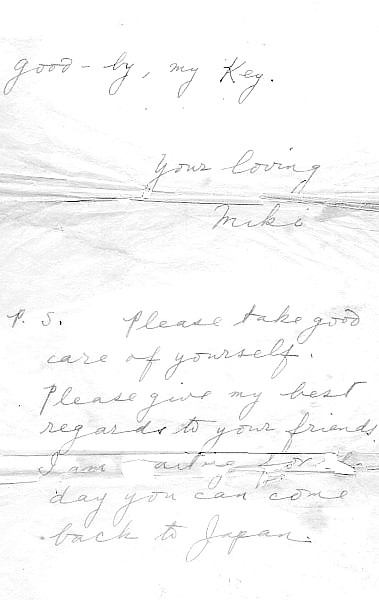 good-by, my Key.
Your loving
Miki
P. S. Please take good
care of yourself.
Please give my best
regards to your friends.
I am for
day you can come
back to Japan.